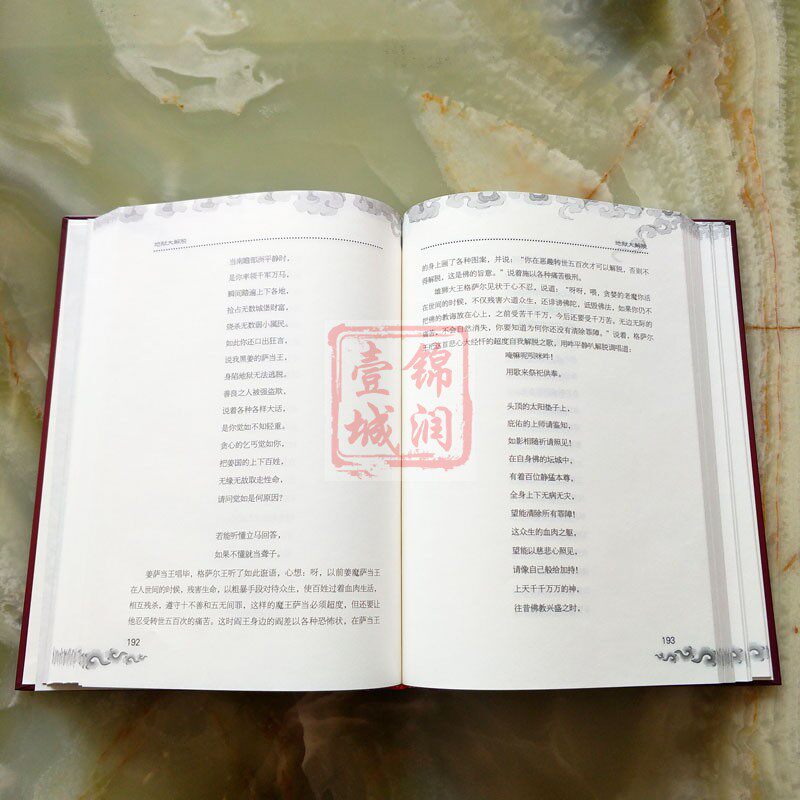 地狱大解脱
当南瞻部洲平静时,
是你率领千军万马,
瞬间踏遍上下各地,
抢占无数城堡财富,
烧杀无数弱小属民。
如此你还口出狂言,
说我黑姜的萨当王,
身陷地狱无法逃脱。
善良之人被强盗欺,
说着各种各样大话,
是你觉如不知轻重。
贪心的乞丐觉如你,
把姜国的上下百姓,
无缘无故取走性命,
请问觉如是何原因?
若能听懂立马回答,
如果不懂就当聋子。
姜萨当王唱毕,格萨尔王听了如此诳语,心想:呀,以前姜魔萨当王
在人世间的时候,残害生命,以粗暴手段对待众生,使百姓过着血肉生活,
相互残杀,遵守十不善和五无间罪,这样的魔王萨当必须超度,但还要让
他忍受转世五百次的痛苦。这时阎王身边的阎差以各种恐怖状,在萨当王
192
地狱大解脱
的身上画了各种图案,并说:“你在恶趣转世五百次才可以解脱,否则不
得解脱,这是佛的旨意。”说着施以各种痛苦极刑。
雄狮大王格萨尔见状于心不忍,说道:“呀呀,喂,贪婪的老魔你活
在世间的时候,不仅残害六道众生,还诽谤佛陀,诋毁佛法,如果你仍不
把佛的教诲放在心上,之前受苦千千万,今后还要受千万苦。无边无际的
痛苦,不会自然消失,你要知道为何你还没有清除罪障。”说着,格萨尔
王把这百悲心大经忏的超度自我解脱之歌,用呤平静叭解脱调唱道:
唵嘛呢呗咪吽!
用歌来祭祀供奉。
头顶的太阳垫子上,
庇佑的上师请鉴知,
如影相随祈请照见!
在自身佛的坛城中,
有着百位静猛本尊,
全身上下无病无灾,
望能清除所有罪障!
这众生的血肉之躯,
望能以慈悲心照见,
请像自己般给加持!
上天千千万万的神,
往昔佛教兴盛之时,
193
锦润
壹城